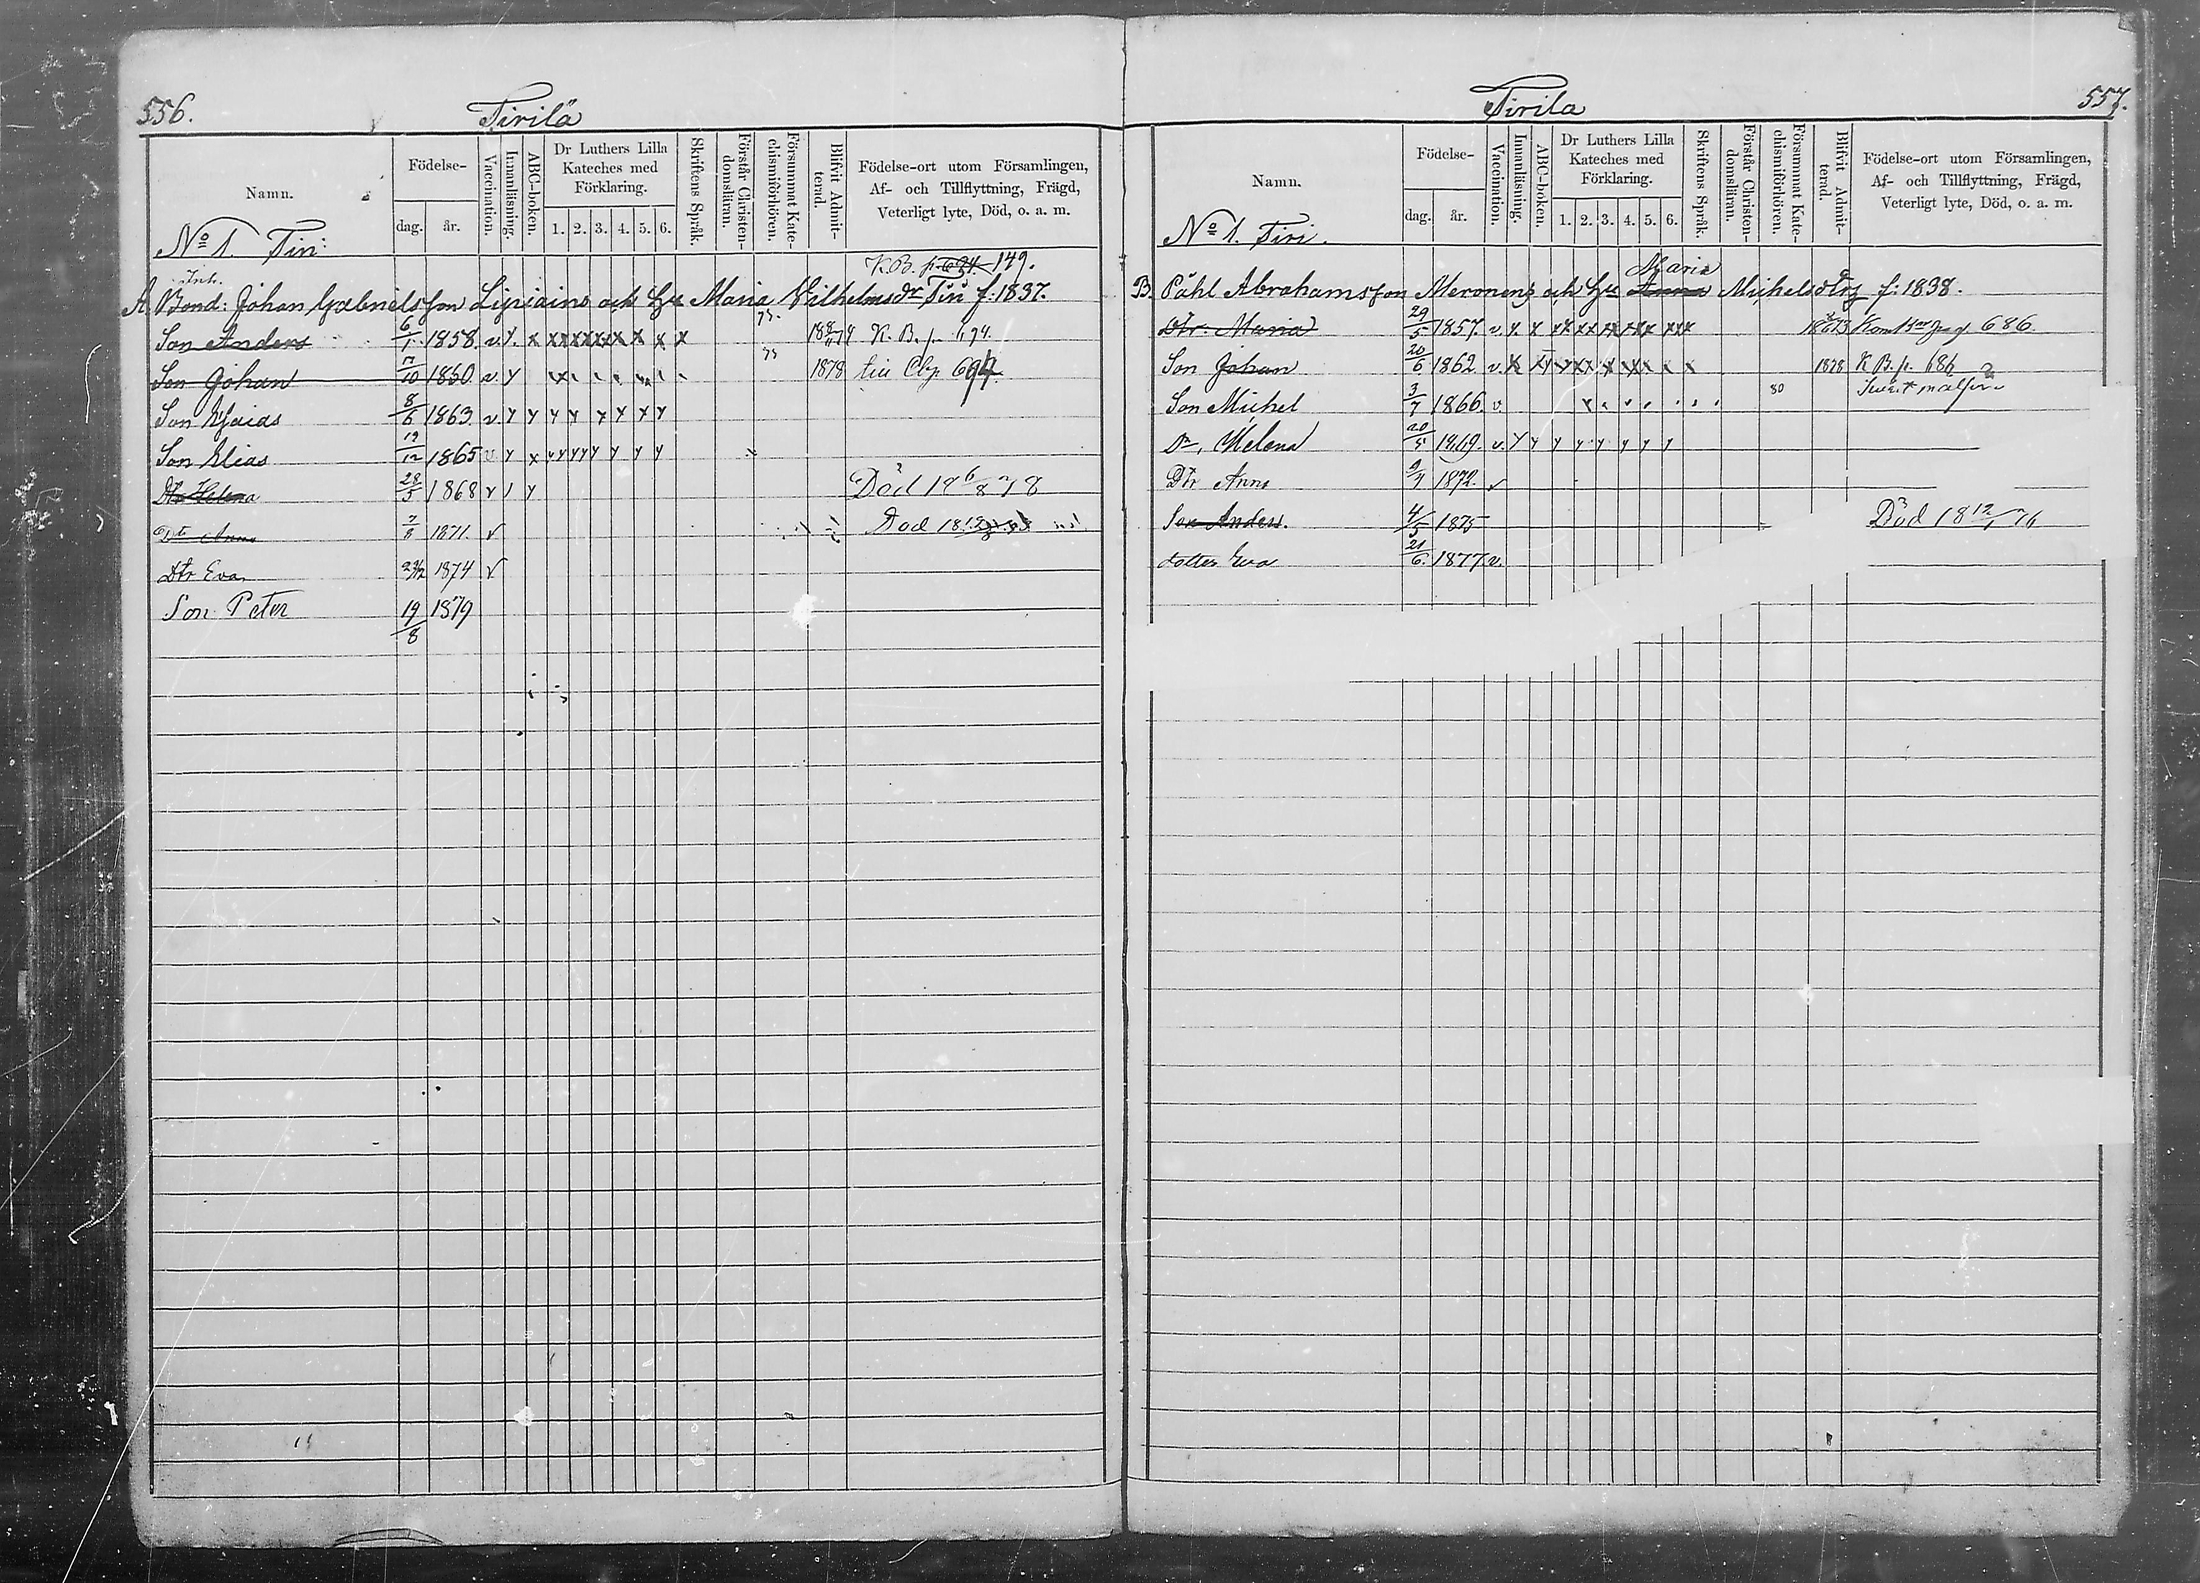 556.
Tirilä
Namn.
Födelse-
dag.
år.
Vaccination.
Innanläsning.
ABC-boken.
Dr Luthers Lilla
Kateches med
Förklaring.
1. 2. 3. 4. 5. 6.
Skriftens Språk.
Förstår Christen-
domsläran.
Försummat Kate-
chismiförhören.
Blifvit Admit-
terad.
Födelse-ort utom Församlingen,
Af- och Tillflyttning, Frägd,
Veterligt lyte, Död, o. a. m.
No 1. Tiri
K.B. p. 694. 149.
Inh.
A Bond: Johan Gabrielsson och Hu Maria Vilhelmsdr Tiri f: 1837.
Son Anders 6/1 1858. v. y. x 73. K. B. p. 694.
Son Johan 7/10 1860. v y 73 1878 694
Son Esaias 8/6 1863 v y y y y y y y y
Son Elias 19/12 1865 v y x
Dtr Helena 28/5 1868 v 1 y Död 18 6/8 78
Dtr Anna 7/8 1871. v Död 18
Dtr Eva 24/12 1874 v
Son Peter 19/8 1879
557.
Tirila
Namn.
Födelse-
dag.
år.
Vaccination.
Innanläsning.
ABC-boken.
Dr Luthers Lilla
Kateches med
Förklaring.
1. 2. 3. 4. 5. 6.
Skriftens Språk.
Förstår Christen-
domsläran.
Försummat Kate-
chismiförhören.
Blifvit Admit-
terad.
Födelse-ort utom Församlingen,
Af- och Tillflyttning, Frägd,
Veterligt lyte, Död, o. a. m.
No 1. Tiri.
Maria
B. Påhl Abrahamsson Meronens och Hu Anna Michelsdtr f: 1838.
Dtr. Maria 29/5 1857. v. x x 686.
Son Johan 20/6 1862 v. x 1878 K B. p. 686
Son Michel 3/7 1866. v. 80
Dr, Helena 20/5 1869. v. y y y y y y y
Dtr Anna 9/7 1872. v
Son Anders. 4/5 1875 Död 18 12/1 76
dotter Eva 21/6. 1877. v.